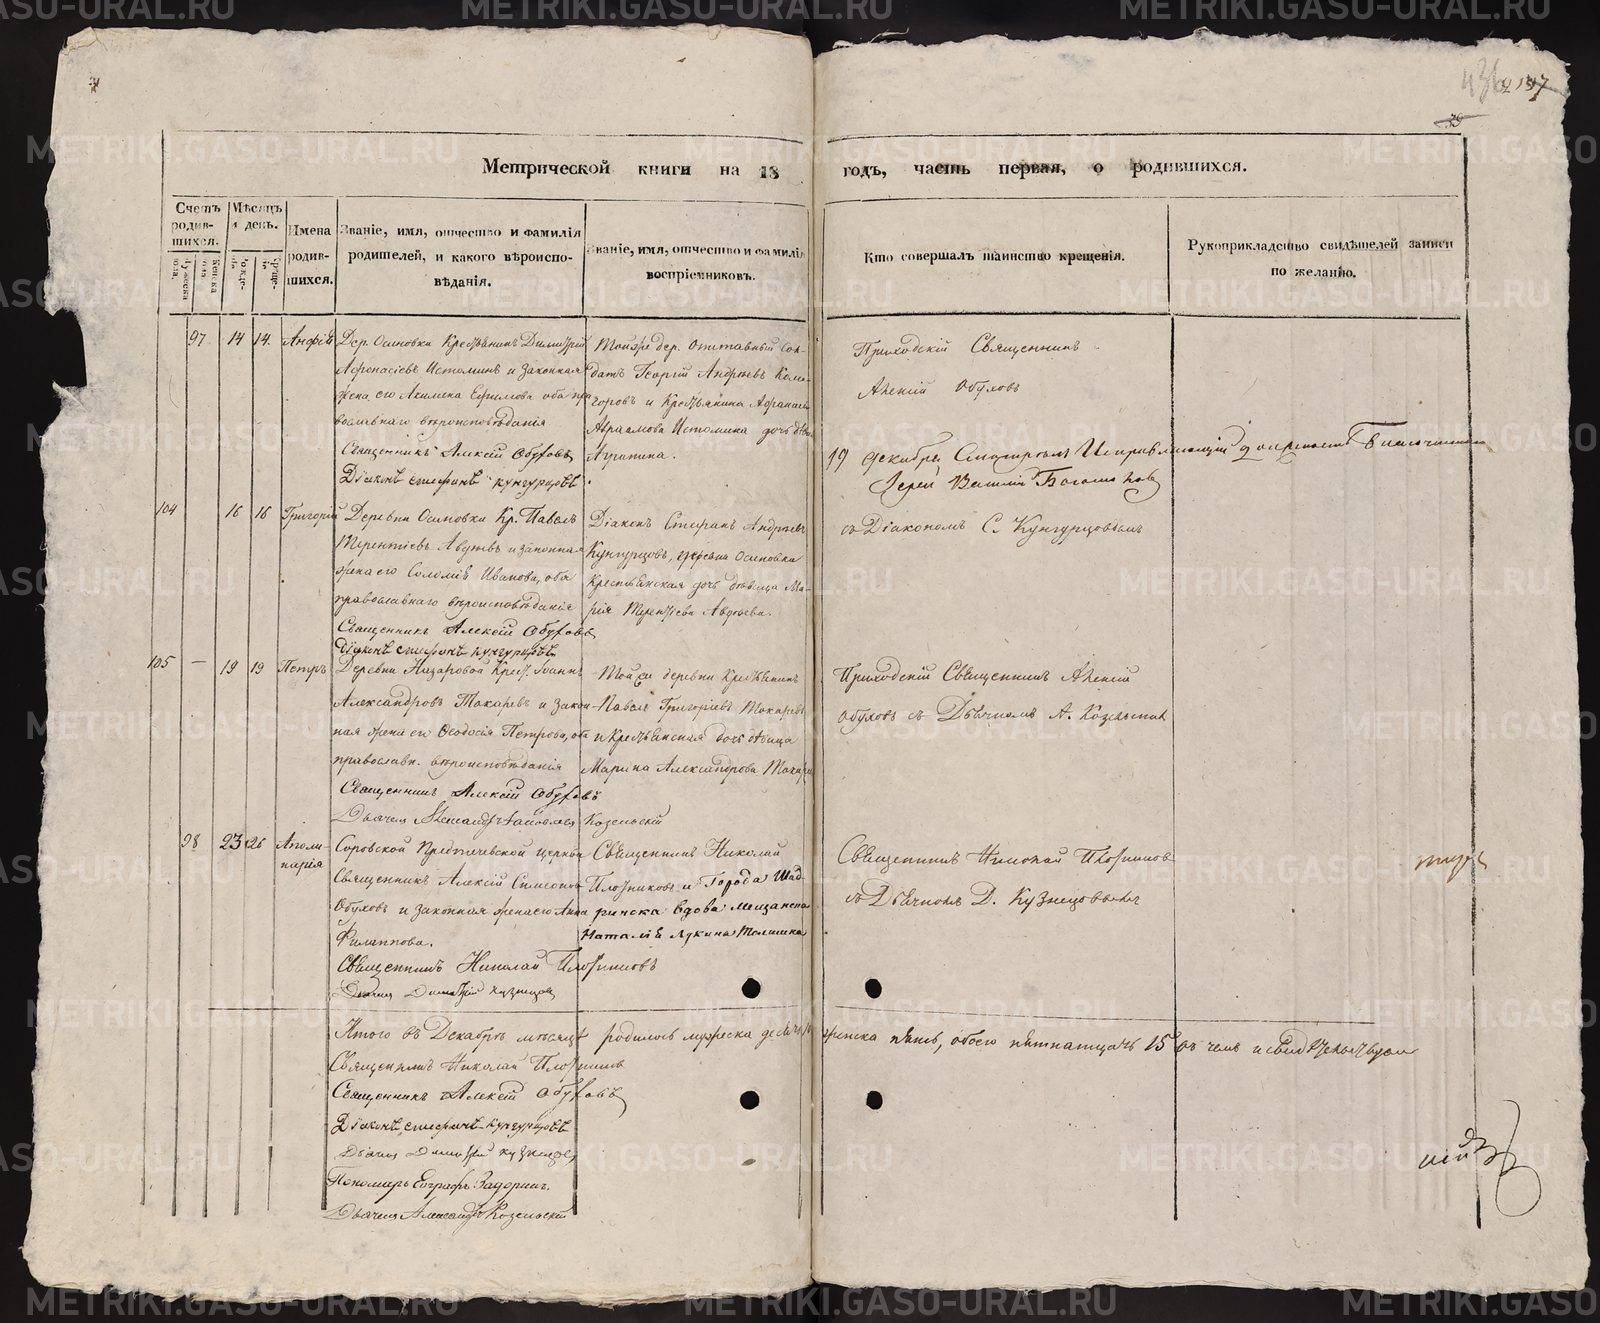 436
79
Метрической книги на 18 годъ, часть первая, о родившихся.
Счетъ родив-шихся.
Мѣсяцъ и день.
Имена родив-шихся.
Званіе, имя, отчество и фамилія родителей, и какого вѣроиспо-вѣданія.
Званіе, имя, отчество и фамилія воспріемниковъ.
Кто совершалъ таинство крещенія.
Рукоприкладство свидѣтелей записи по желанію.
97 14 14
Дер. Осиновки Крестьянинъ Димитрій
Афонасіевъ Истоминъ и Законная
жена его Акилина Ефимова оба пра
вославнаго вѣроисповѣданія
Священникъ Алексій Обуховъ
Діаконъ Стефанъ Кунгурцовъ
Тойже дер. Отставный Сол-
датъ Георгій Андреевъ
и Крестьянина Афанасія
Авраамова Истомина дочь
Приходскій Священникъ
Алексій Обуховъ
19 декабря Исправляющій должность Благочиннаго
Іерей Василій
104 16 16 Григорій
Деревни Осиновки Кр. Павелъ
Терентіевъ Авдѣевъ и законная
жена его Соломія Иванова, оба
православнаго вѣроисповѣданія
Священникъ Алексій Обуховъ
Діаконъ Стефанъ Кунгурцовъ
Діаконъ Стефанъ Андреевъ
Кунгурцовъ, деревни Осиновки
Крестьянская дочь дѣвица Ма-
рія Терентіева Авдѣева.
съ Діакономъ С. Кунгурцовымъ
105 — 19 19 Петръ
Деревни Назаровой Крест. Іоаннъ
Александровъ Токаревъ и Закон-
ная жена его Ѳеодосія Петрова, оба
православн. вѣроисповѣданія
Священникъ Алексій Обуховъ
Дьячекъ Александръ Козельскій
Той же деревни Крестьянинъ
Павелъ Григоріевъ Токаревъ
и Крестьянская дочь дѣвица
Марина Александрова
Приходскій Священникъ Алексій
Обуховъ съ Дьячкомъ А. Козельскимъ
98 23 26 Аполи-
нарія
Соровской Предтечевской церкви
Священникъ Алексій Симеоновъ
Обуховъ и законная жена его Анна
Филиппова.
Священникъ Николай Плотниковъ
Дьячекъ Димитрій Кузнецовъ
Священникъ Николай
Плотниковъ и Города Шад-
ринска вдова мещанска
Наталія Лукина
Священникъ Николай Плотниковъ
съ Дьячкомъ Д. Кузнецовымъ
Итого въ Декабрѣ мѣсяцѣ родилось мужеска десять женска пять, обоего пятнатцать 15 въ чемъ и свидѣтельствуемъ
Священникъ Николай Плотниковъ
Священникъ Алексій Обуховъ
Діаконъ Стефанъ Кунгурцовъ
Дьячекъ Димитрій Кузнецовъ
Пономарь Евграфъ Задоринъ.
Дьячекъ Александръ Козельскій
METRIKI.GASO-URAL.RU